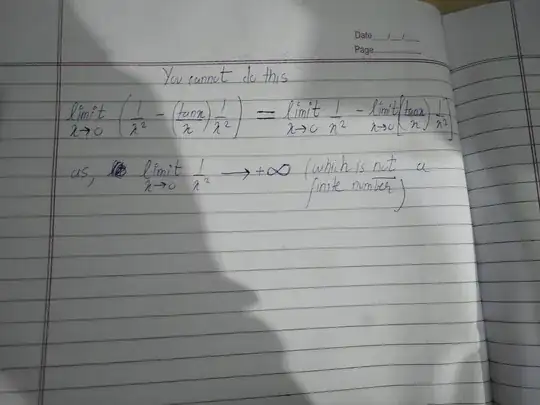 Date __/__/__
Page
You cannot do this
limit x→0 (1/x² - (tanx/x) 1/x²) = limit x→0 1/x² - limit x→0 [(tanx/x) 1/x²]
as, limit x→0 1/x² → +∞ (which is not a
finite number)